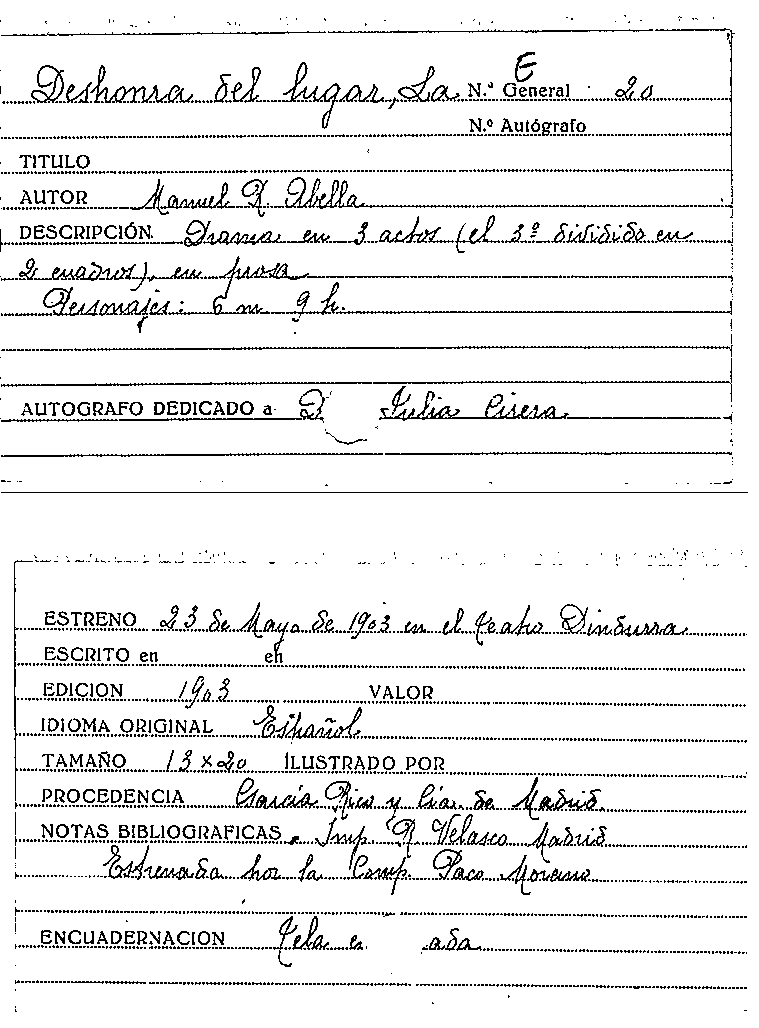 E
Deshonra del lugar, La N.º General 20
N.º Autógrafo
TITULO
AUTOR Manuel R. Abella
DESCRIPCIÓN Drama en 3 actos (el 3º dividido en
2 cuadros), en prosa
Personajes: 6 m 9 h.
AUTOGRAFO DEDICADO a D Julia Cirera
ESTRENO 23 de Mayo de 1903 en el teatro Dindurra
ESCRITO en en
EDICION 1903 VALOR
IDIOMA ORIGINAL Español
TAMAÑO 13 x 20 ILUSTRADO POR
PROCEDENCIA García Rico y Cía. de Madrid
NOTAS BIBLIOGRAFICAS Imp. R. Velasco Madrid
Estrenada por la Comp. Paco Morano
ENCUADERNACION Tela